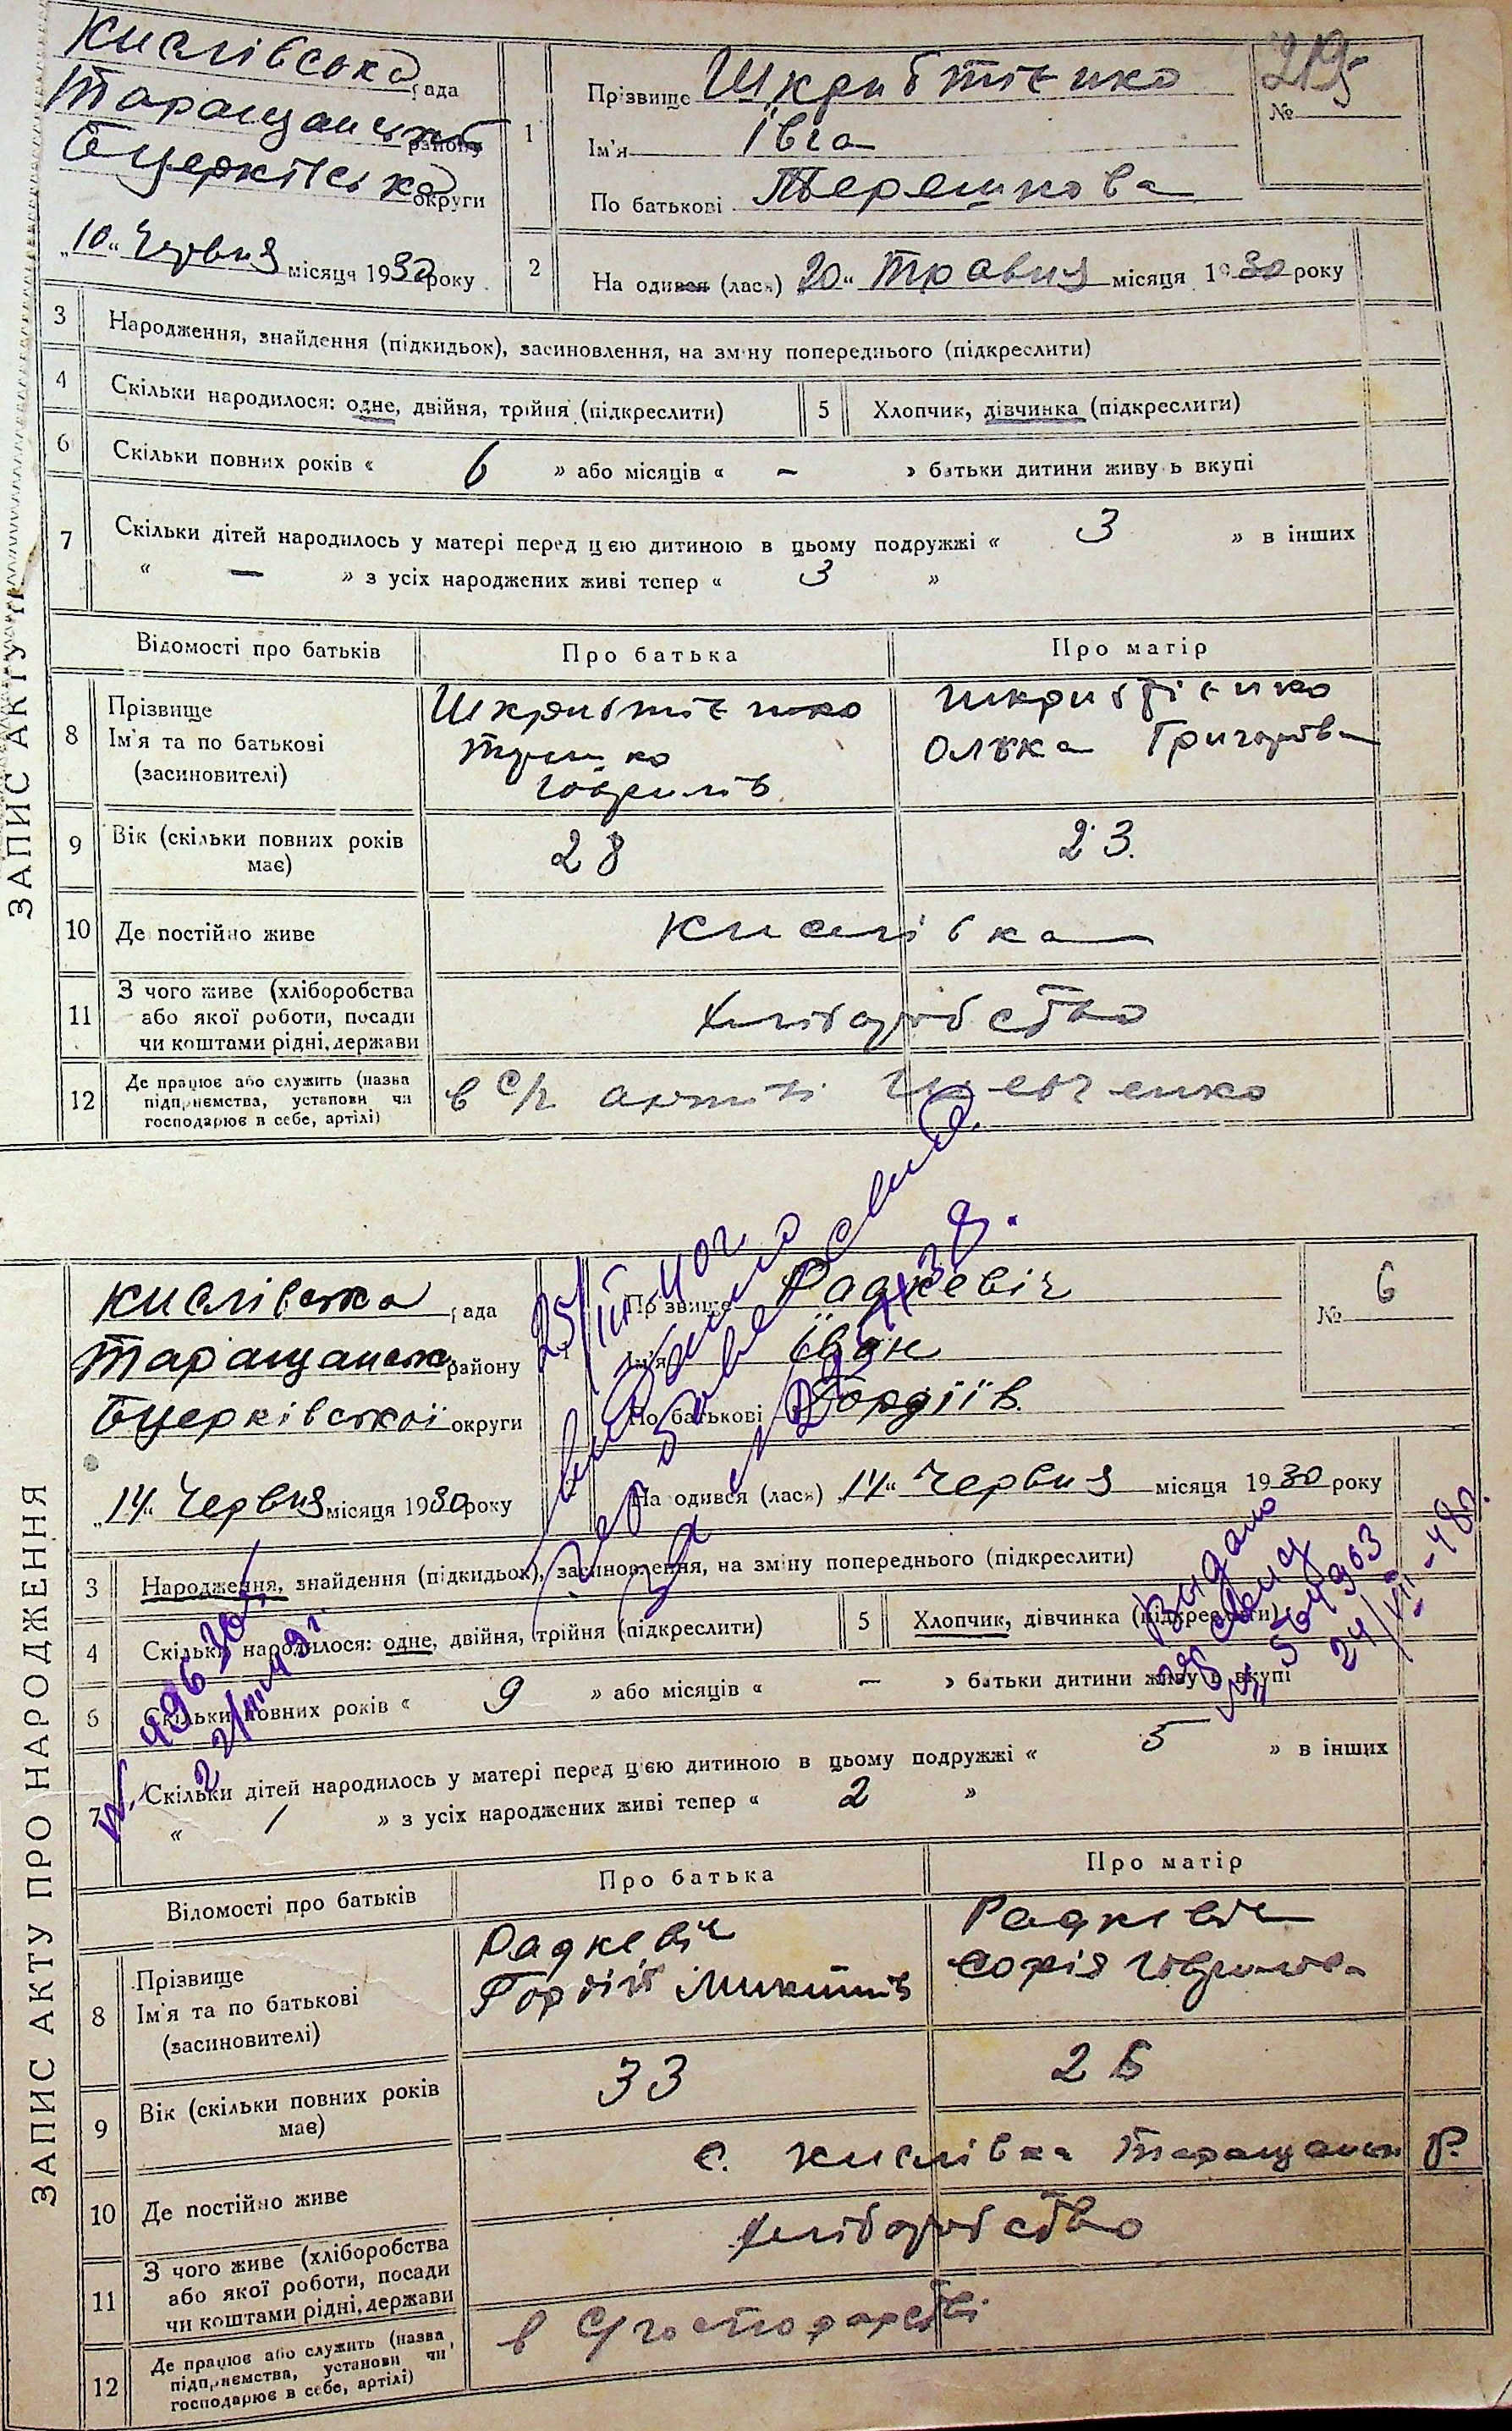 ЗАПИС АКТУ
Кислівська рада
Таращанськ району
Бцерківська округи
„10“ Червня місяця 1930 року
1
Прізвище Шкрибтієнко
Ім'я Івга
По батькові Терешкова
№
219
2
На одився (лась) 20“ Травня місяця 1930 року
3 Народження, знайдення (підкидьок), засиновлення, на зміну попереднього (підкреслити)
4 Скільки народилося: одне, двійня, трійня (підкреслити)
5 Хлопчик, дівчинка (підкреслити)
6 Скільки повних років « 6 » або місяців « — » батьки дитини живуь вкупі
7 Скільки дітей народилось у матері перед цєю дитиною в цьому подружжі « 3 » в інших
« — » з усіх народжених живі тепер « 3 »
Відомості про батьків
Про батька
Про матір
8
Прізвище
Ім'я та по батькові
(засиновителі)
Шкрибтієнко
Гаврилів
Шкрибтієнко
Олька Григорівна
9 Вік (скільки повних років
має)
28
23.
10 Де постійно живе
Кислівка
11
З чого живе (хліборобства
або якої роботи, посади
чи коштами рідні, держави
хліборобство
12
Де працює або служить (назва
підприємства, установи чи
господарює в себе, артілі)
в с/г артілі Шевченко
ЗАПИС АКТУ ПРО НАРОДЖЕННЯ
Кислівська рада
Таращанськ району
Бцерківської округи
„14“ Червня місяця 1930 року
Прізвище Радкевіч
Ім'я Іван
По батькові Гордіїв.
№ 6
На одився (лась) „14“ Червня місяця 1930 року
3 Народження, знайдення (підкидьок), засиновлення, на зміну попереднього (підкреслити)
4 Скільки народилося: одне, двійня, трійня (підкреслити)
5 Хлопчик, дівчинка (підкреслити)
6 Скільки повних років « 9 » або місяців « — » батьки дитини живу вкупі
7 Скільки дітей народилось у матері перед цєю дитиною в цьому подружжі « 5 » в інших
« 1 » з усіх народжених живі тепер « 2 »
Видано
№ 504963
24/VII-48р.
Відомості про батьків
Про батька
Про матір
8
Прізвище
Ім'я та по батькові
(засиновителі)
Радкевіч
Гордій Микитів
Радкевіч
Софія Гаврилова
9 Вік (скільки повних років
має)
33
10 Де постійно живе
с. Кислівка Таращанськ р.
11
З чого живе (хліборобства
або якої роботи, посади
чи коштами рідні, держави
хліборобство
12
Де працює або служить (назва
підприємства, установи чи
господарює в себе, артілі)
в с/господарстві